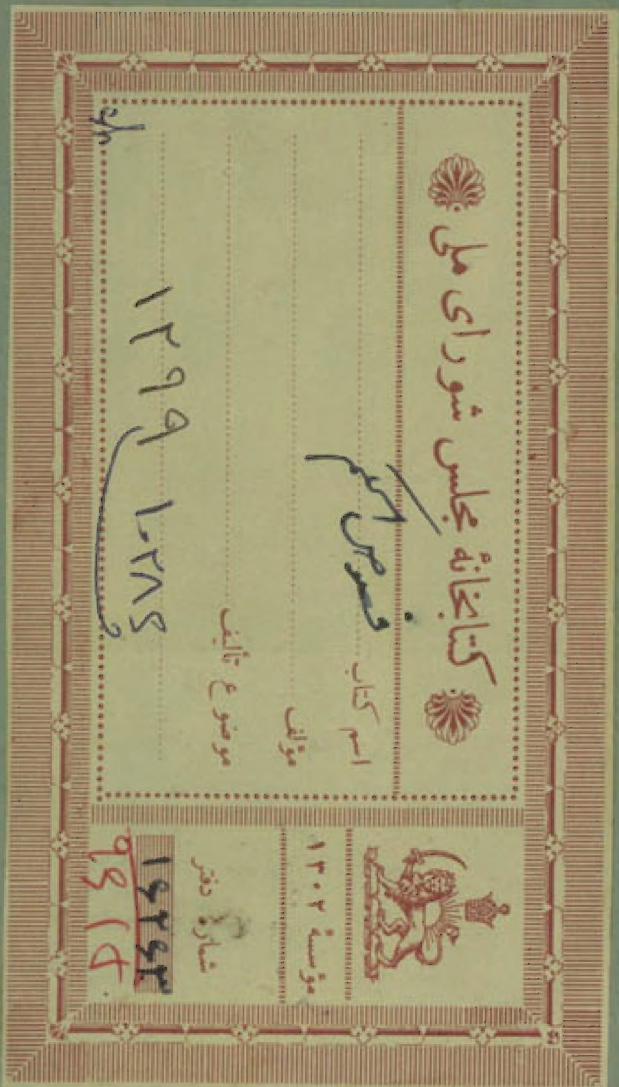 کتابخانهٔ مجلس شورای ملی
اسم کتاب فصوص الحکم
مؤلف
موضوع تألیف
۱۲۹۹
۱۰۲۸۴
مؤسسهٔ ۱۳۰۲
شمارهٔ دفتر